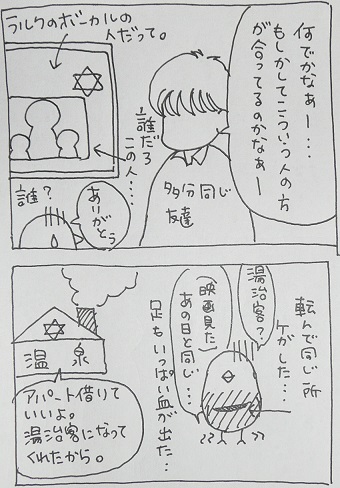 何でかなぁー…
もしかしてこういう人の方
が合ってるのかなぁー
ラルクのボーカルの
人だって。
誰だろ
この人…
多分同じ
友達
ありがとう
誰?
転んで同じ所
ケガした…
湯治客?
(映画見た)
あの日と同じ…
足もいっぱい血が出た…
温泉
アパート借りて
いいよ。
湯治客になって
くれたから。